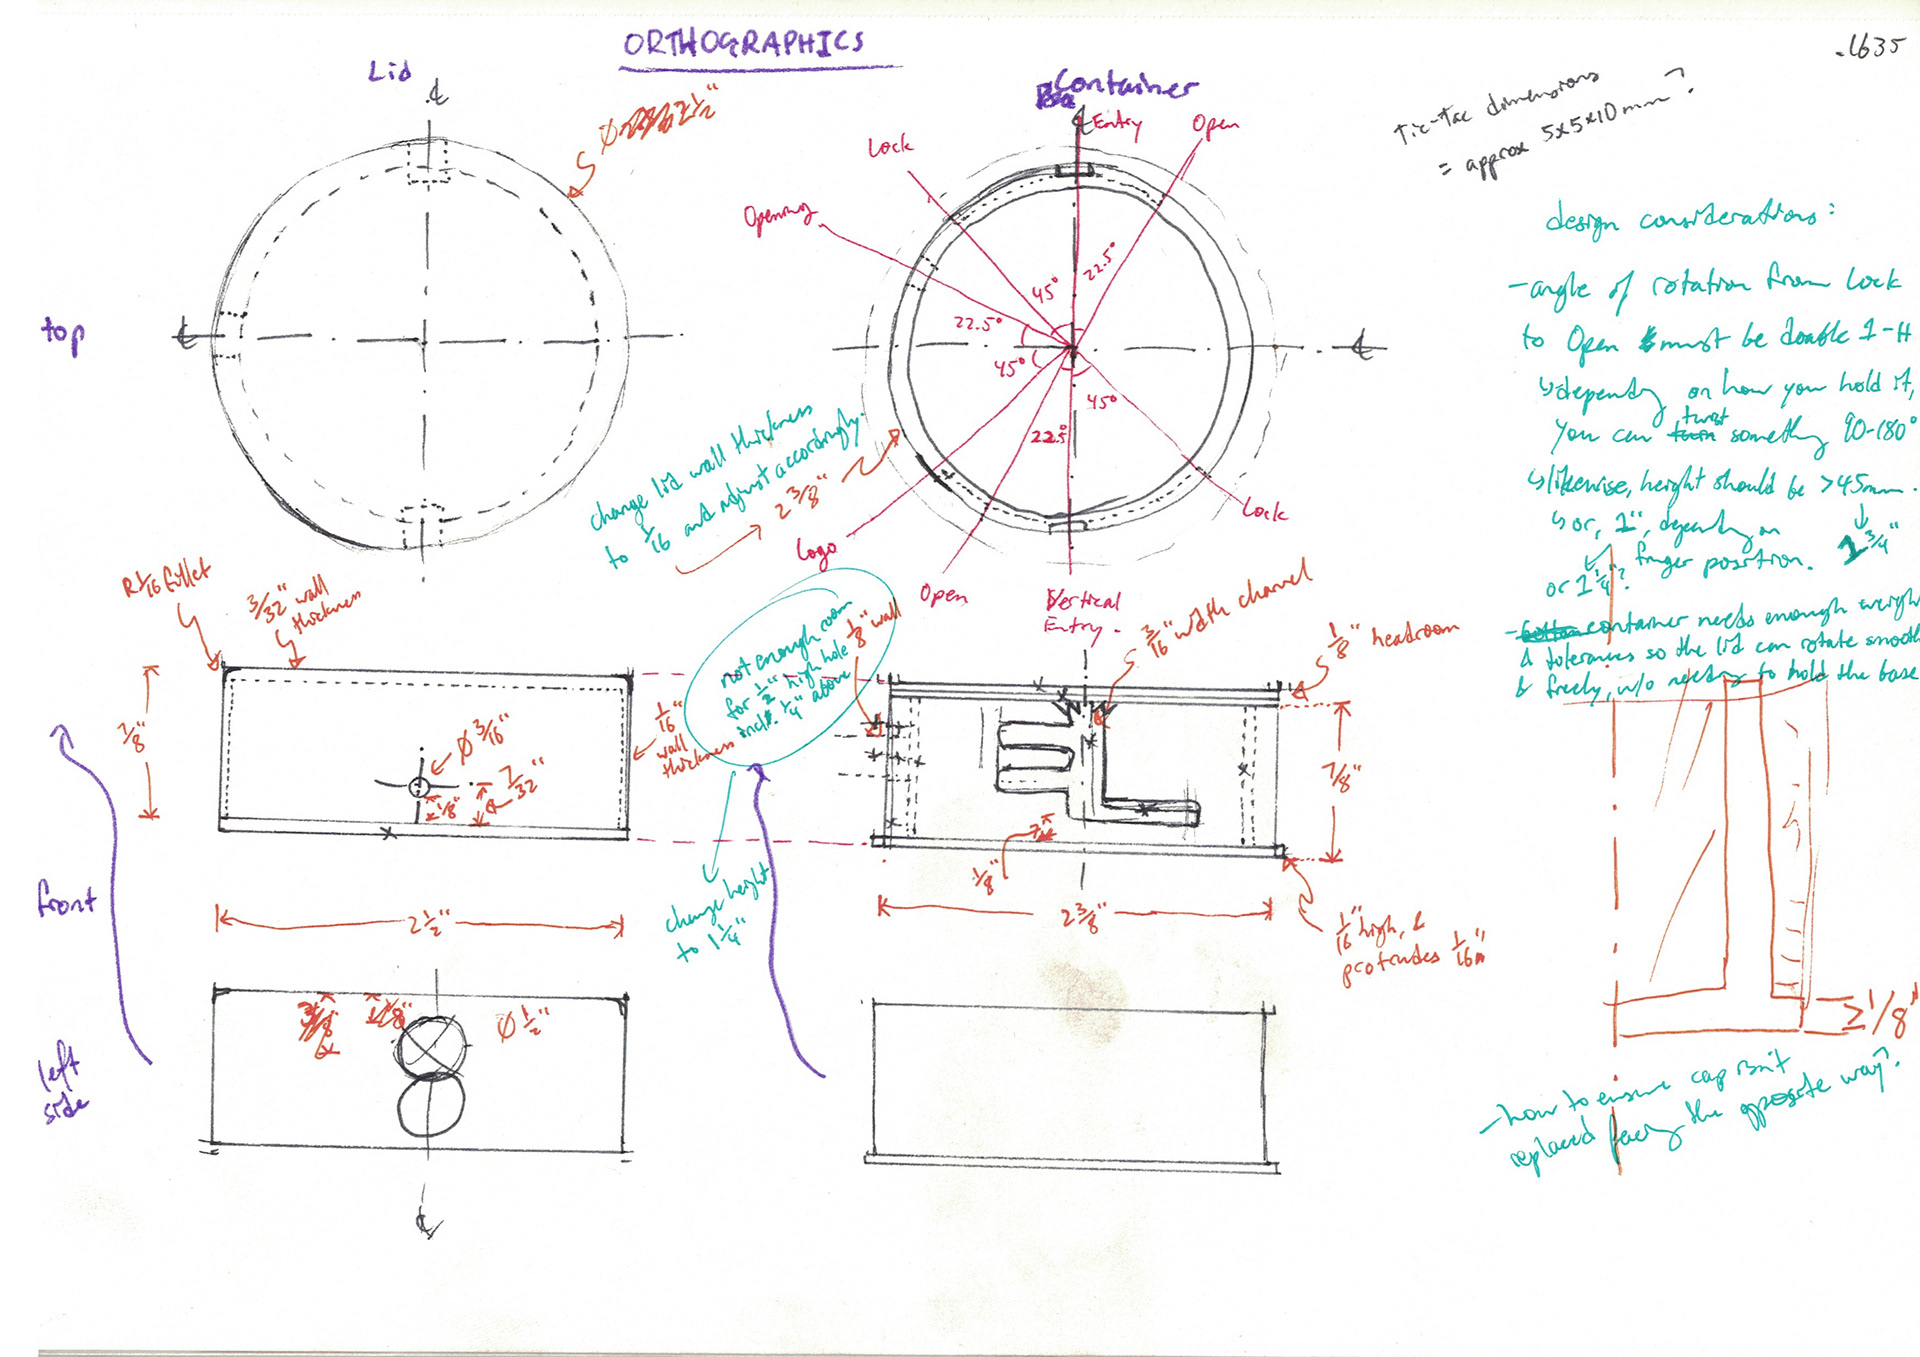 ORTHOGRAPHICS
.1635
Lid
Container
℄
Ø 2 1/2"
Entry
Open
Lock
Opening
tic-tac dimensions?
= approx 5x5x10mm
design considerations:
- angle of rotation from lock
to Open must be double 1-H
↳ depending on how you hold it,
you can twist something 90-180°
↳ likewise, height should be >45mm.
↳ or, 1", depending on
finger position. 1 3/4"
or 1 1/4"?
- container needs enough weight
& tolerances so the lid can rotate smooth
& freely, w/o needing to hold the base
top
℄
℄
45°
22.5°
22.5°
45°
45°
22.5°
change lid wall thickness
to 1/16 and adjust accordingly.
2 3/8"
Logo
Open
Vertical
Entry.
Lock
R1/16 fillet
3/32" wall
thickness
not enough room
for 1/2" high hole
incl. 1/4" above
1/8" wall
3/16" width channel
1/8" headroom
7/8"
Ø 3/16"
7/32"
1/8"
1/16"
wall
thickness
7/8"
1/8"
front
2 1/2"
change height
to 1 1/4"
2 3/8"
1/16" high, &
protrudes 1/16"
left
side
Ø 1/2"
1/8"
℄
- how to ensure cap isn't
replaced facing the opposite way?